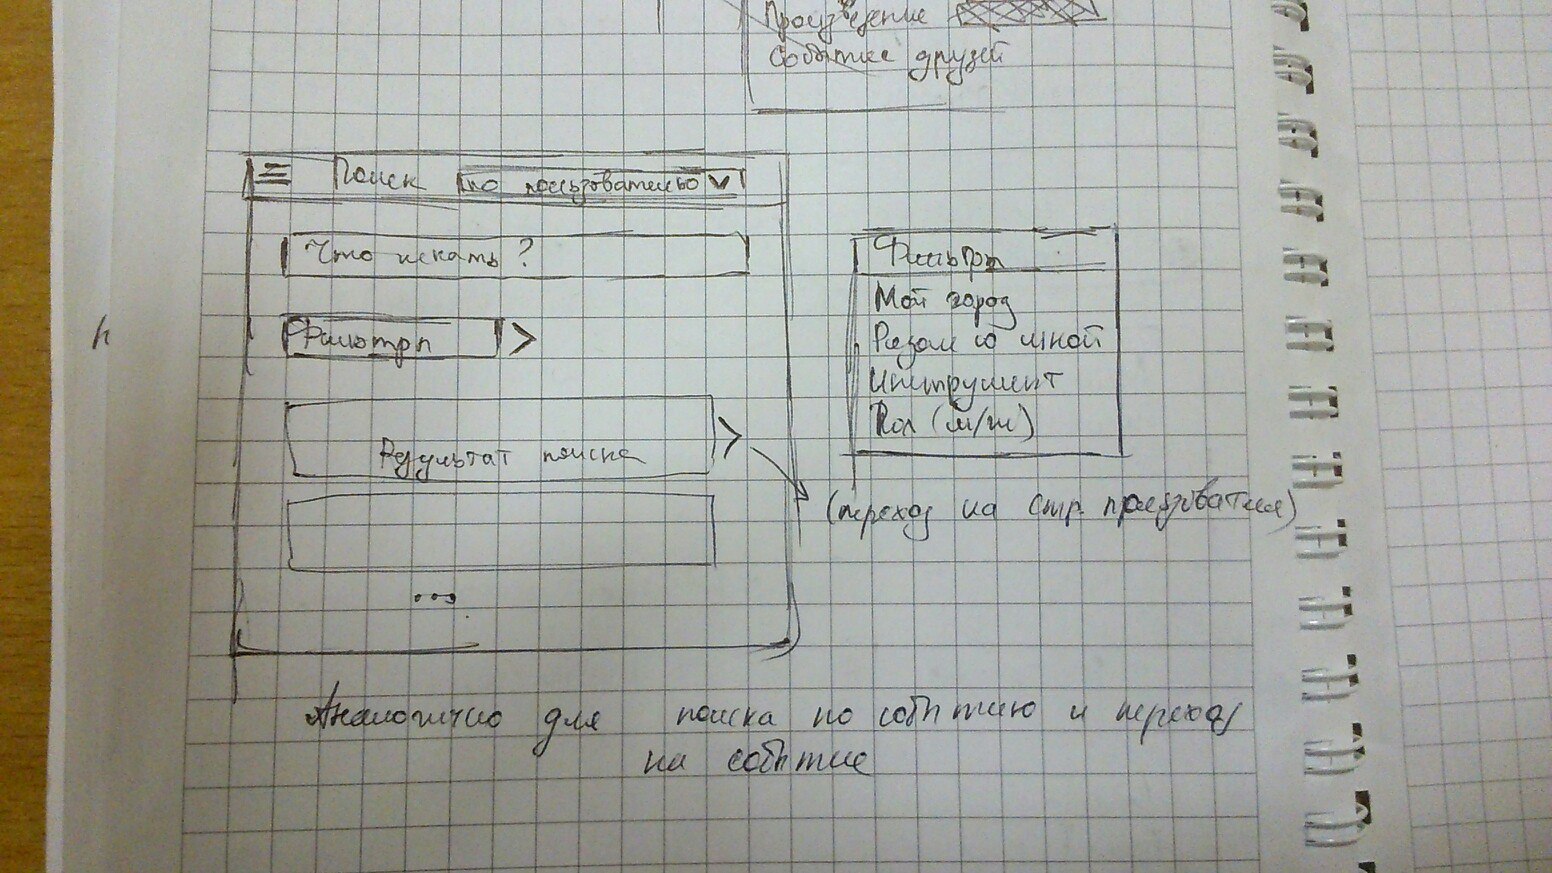 Произведение
События друзей
Поиск по пользователю
Что искать?
Фильтры
Результат поиска
...
Фильтры
Мой город
Рядом со мной
Инструмент
Пол (м/ж)
(переход на стр. пользователя)
Аналогично для поиска по событию и переход
на событие